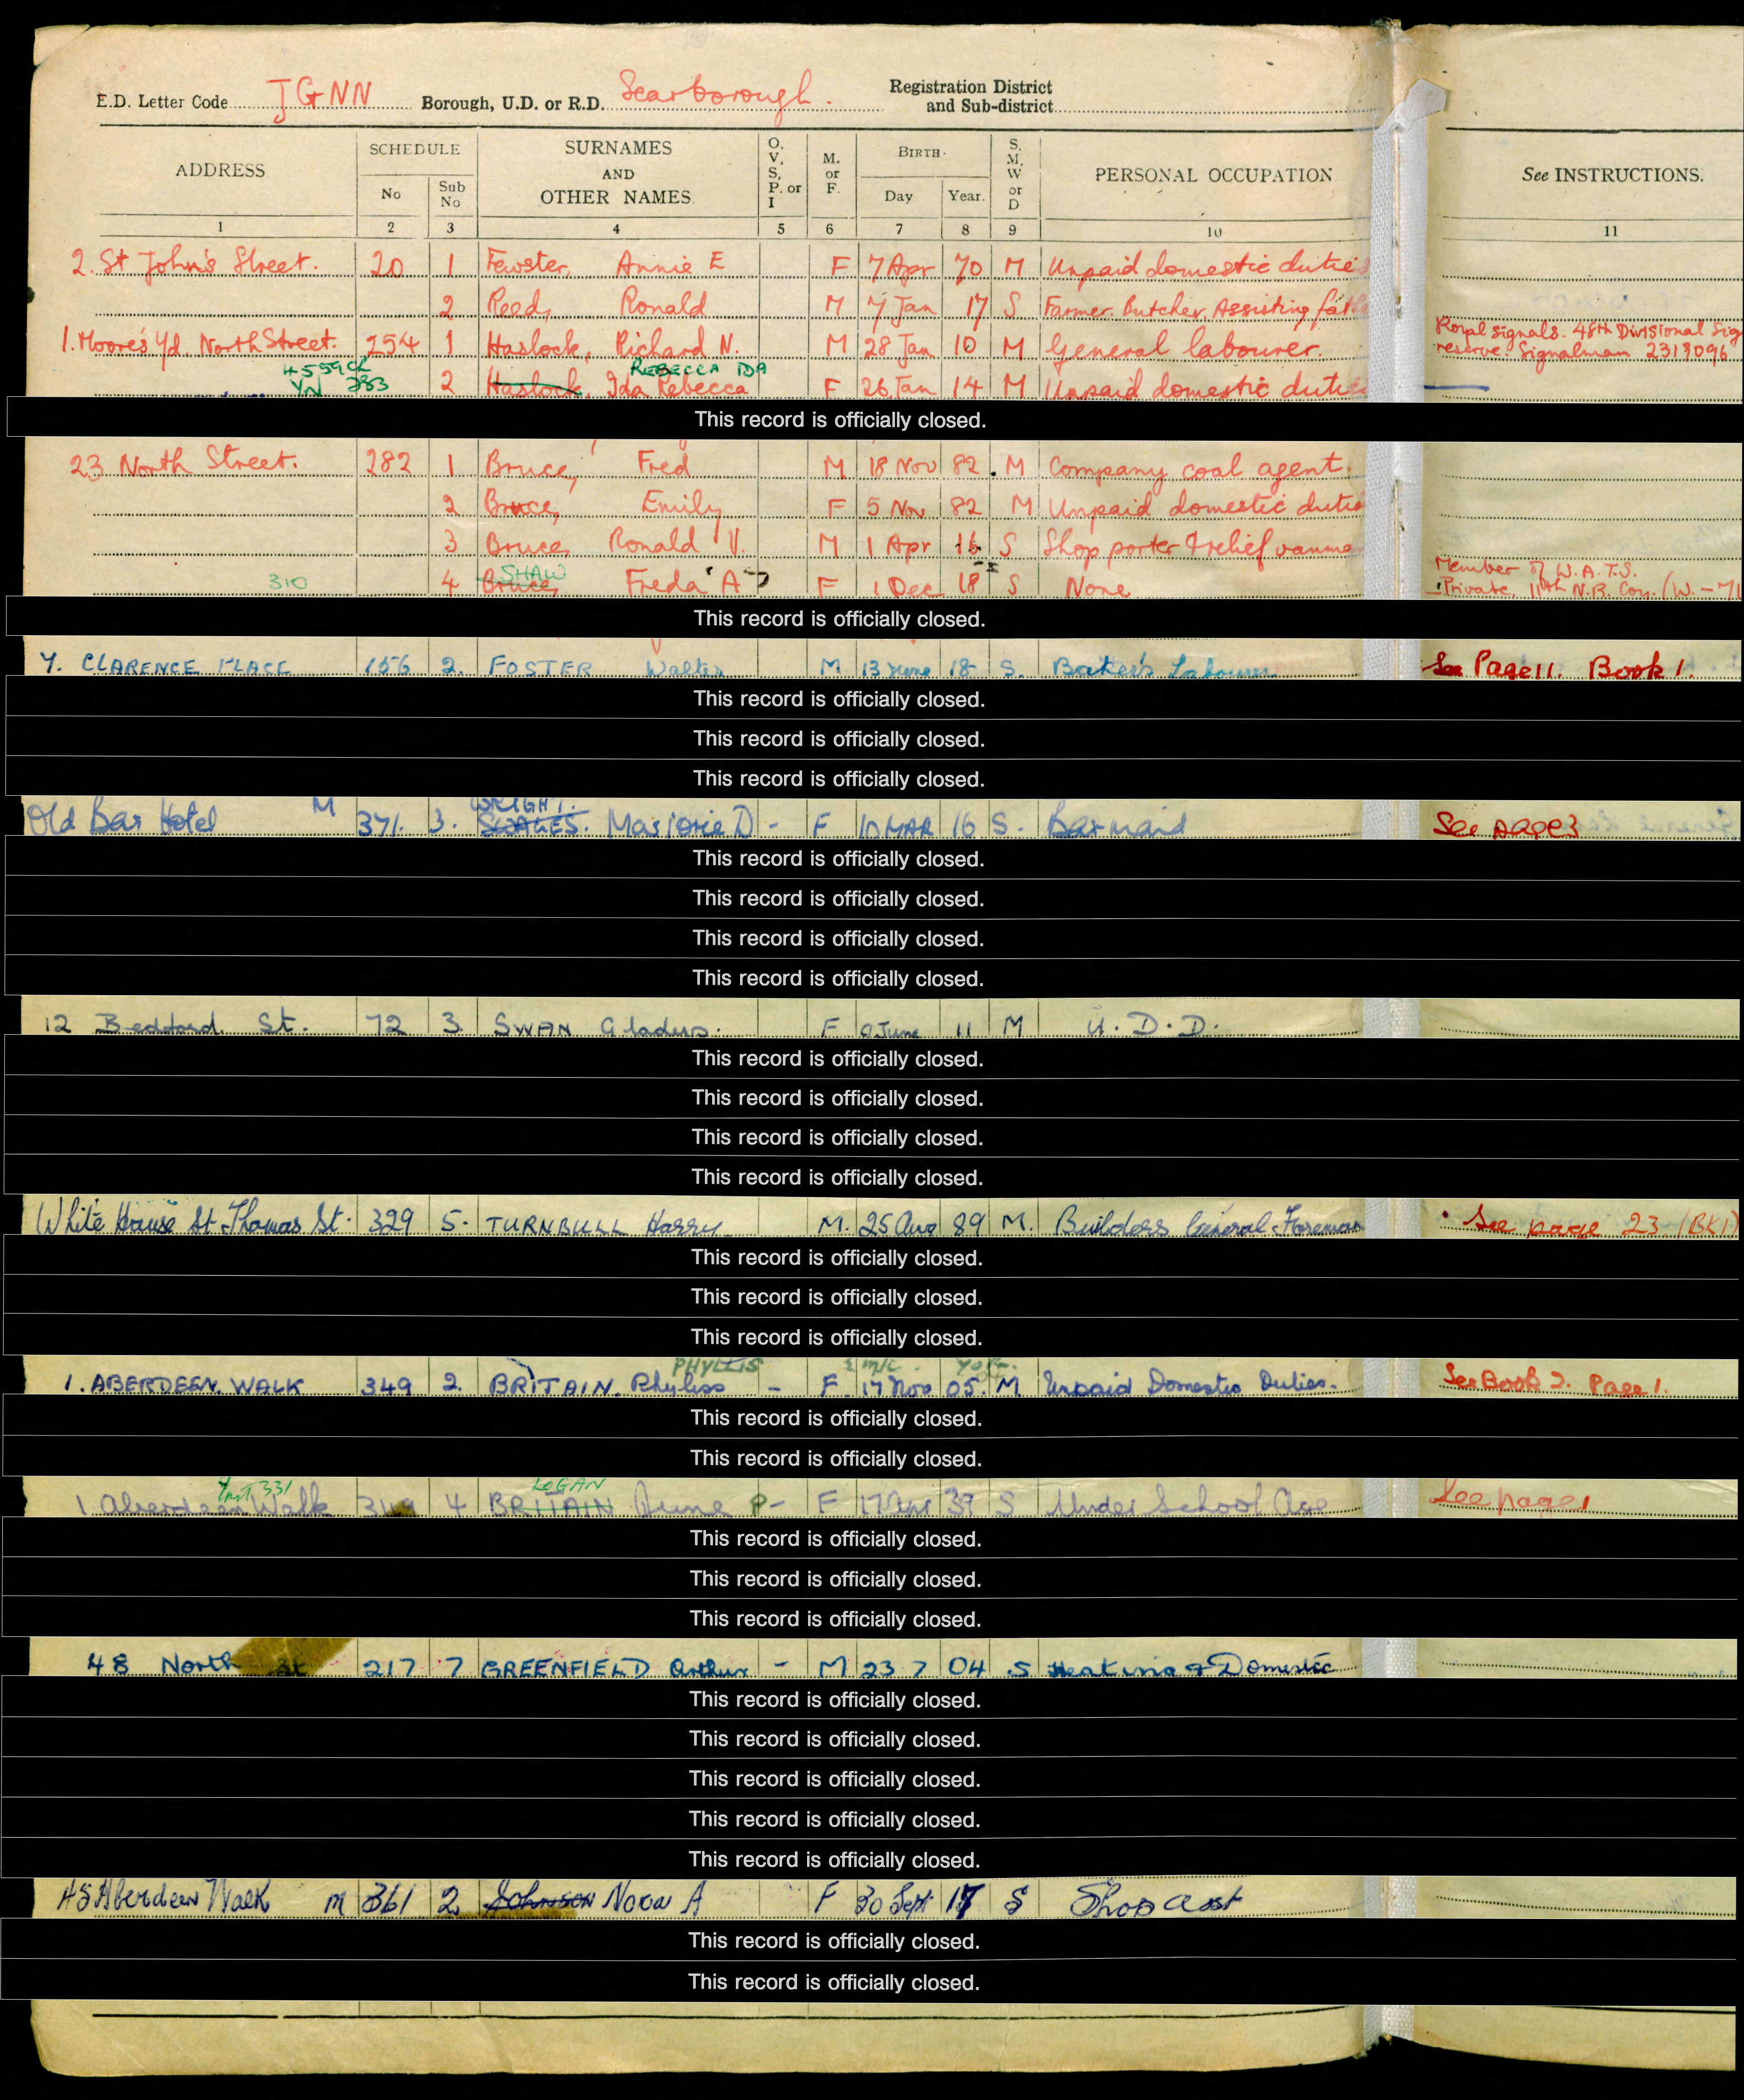 E.D. Letter Code JGNN Borough, U.D. or R.D. Scarborough. Registration District and Sub-district
ADDRESS SCHEDULE SURNAMES AND OTHER NAMES O, V, S, P. or I M. or F. BIRTH S, M, W or D PERSONAL OCCUPATION See INSTRUCTIONS.
No Sub No Day Year.
1 2 3 4 5 6 7 8 9 10 11
2. St John's Street. 20 1 Fewster, Annie E F 7 Apr 70 M Unpaid domestic duties
2 Reed, Ronald M 7 Jan 17 S Farmer, Butcher, Assisting father
Royal Signals. 48th Divisional Sig
1. Moore's Yd. North Street. 254 1 Haslock, Richard N. M 28 Jan 10 M General labourer. reserve. Signalman 2319096
REBECCA IDA
YN 383 2 Haslock, Ida Rebecca F 26 Jan 14 M Unpaid domestic duties
This record is officially closed.
23 North Street. 282 1 Bruce, Fred M 18 Nov 82 M Company coal agent.
2 Bruce, Emily F 5 Nov 82 M Unpaid domestic duties
3 Bruce, Ronald V. M 1 Apr 16 S Shop porter & relief vanma
SHAW Member of W.A.T.S.
310 4 Bruce, Freda A F 1 Dec 18 S None Private, 11th N.R. Coy. (W. - 71
This record is officially closed.
7. CLARENCE PLACE 156 2. FOSTER Walter M 13 June 18 S. Baker's Labourer See Page 11. Book 1.
This record is officially closed.
This record is officially closed.
This record is officially closed.
WRIGHT.
Old Bar Hotel M 371. 3. SCALES. Marjorie D - F 10 MAR 16 S. Barmaid See page 3
This record is officially closed.
This record is officially closed.
This record is officially closed.
This record is officially closed.
12 Bedford St. 72 3 SWAN Gladys. F 9 June 11 M U.D.D.
This record is officially closed.
This record is officially closed.
This record is officially closed.
This record is officially closed.
White House St. Thomas St. 329 5. TURNBULL Harry M. 25 Aug 89 M. Builders General Foreman See page 23 (BK1)
This record is officially closed.
This record is officially closed.
This record is officially closed.
PHYLLIS
1. ABERDEEN WALK 349 2. BRITAIN. Phyliss - F. 17 Nov 05. M Unpaid Domestic Duties. See Book 2. Page 1.
This record is officially closed.
This record is officially closed.
331 LOGAN
1 Aberdeen Walk 349 4 BRITAIN June P- F 17 Apr 39 S Under School Age See page 1
This record is officially closed.
This record is officially closed.
This record is officially closed.
48 North St 217 7 GREENFIELD Arthur - M 23 7 04 S Heating & Domestic
This record is officially closed.
This record is officially closed.
This record is officially closed.
This record is officially closed.
This record is officially closed.
45 Aberdeen Walk M 361 2 Johnson Nora A F 30 Sept 17 S Shop asst
This record is officially closed.
This record is officially closed.